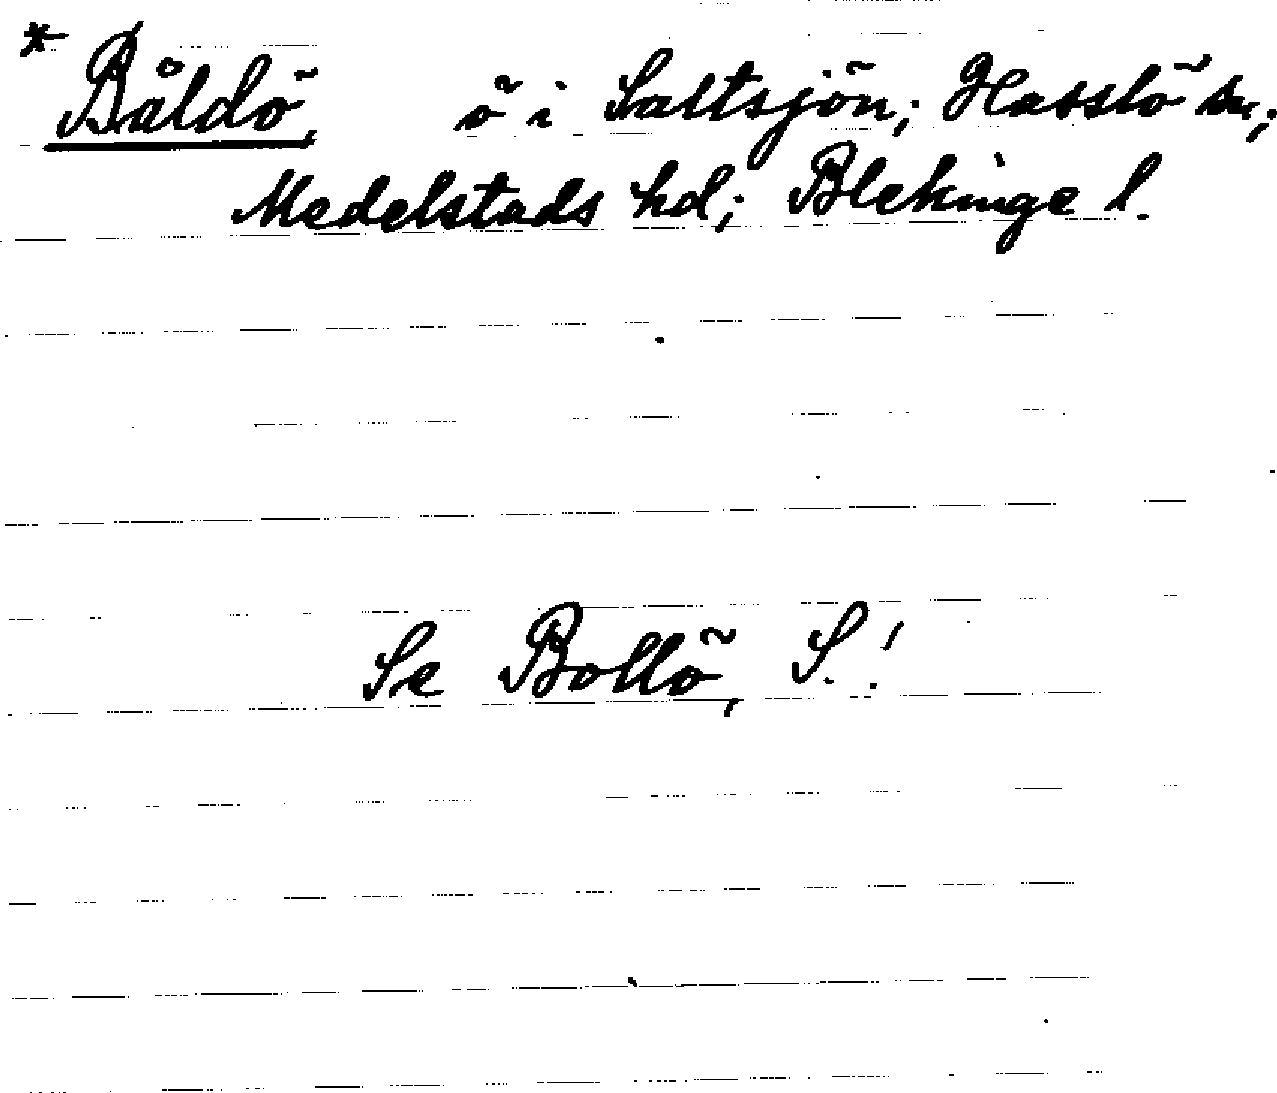 * Båldö, ö i Saltsjön; Hasslö sn;
Medelstads hd; Blekinge l.
Se Bollö, S.!